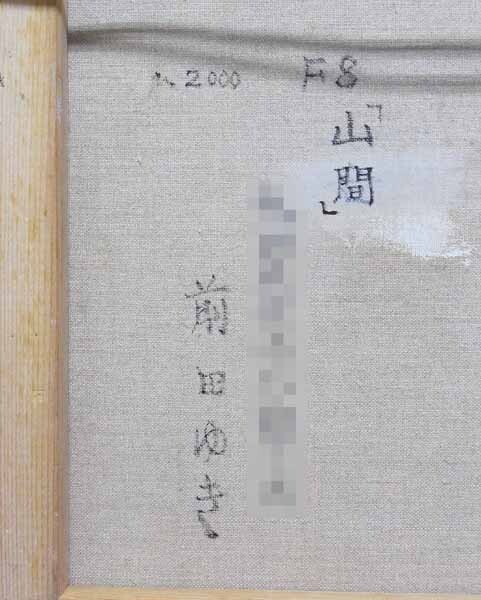 2000
F8
「山間」
前田ゆき